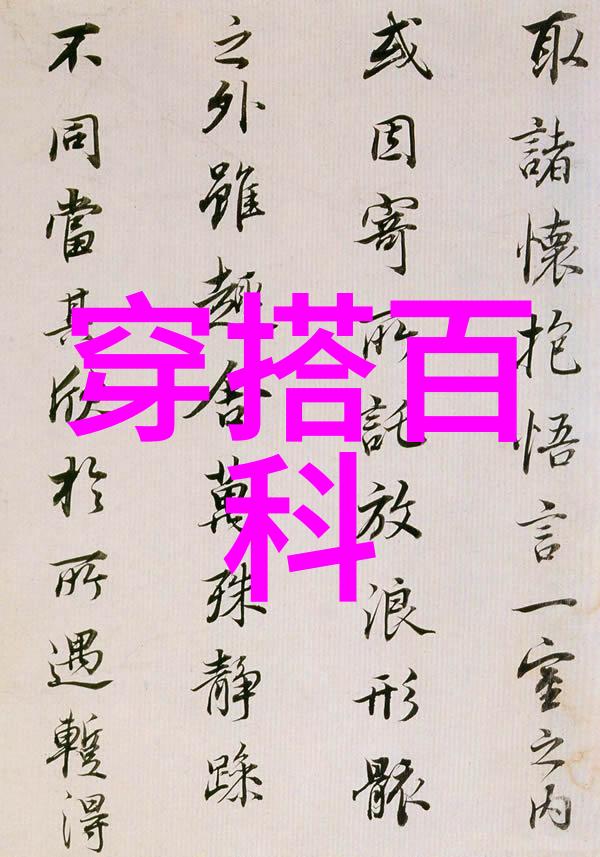 取諸懷抱悟言一室之內
或因寄所託放浪形骸
之外雖趣舍萬殊静躁
不同當其欣於所遇蹔得
穿搭百
科